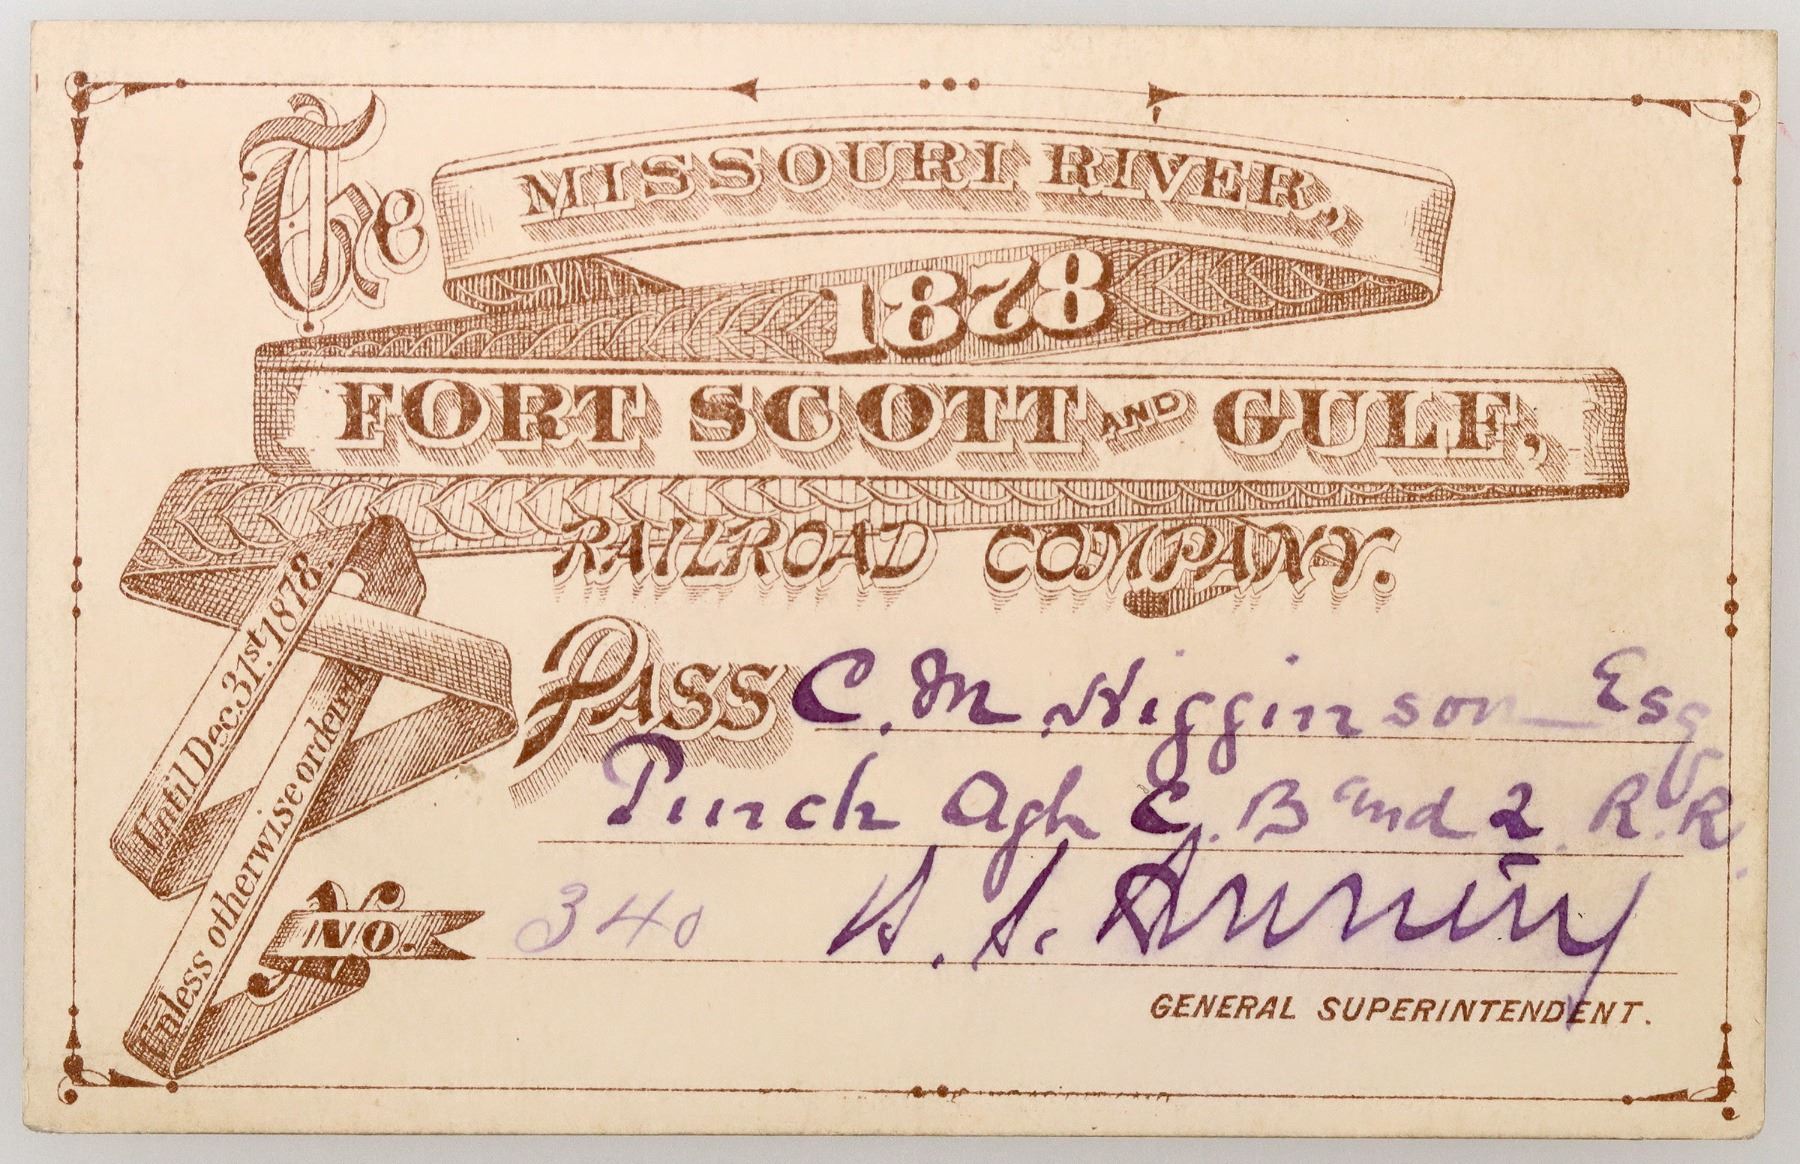 The MISSOURI RIVER,
1878
FORT SCOTT AND GULF,
RAILROAD COMPANY.
Until Dec. 31st. 1878.
Unless otherwise ordered
PASS C. M. Higginson Esq
Purch Agt C. B and 2 R. R.
No. 340
GENERAL SUPERINTENDENT.